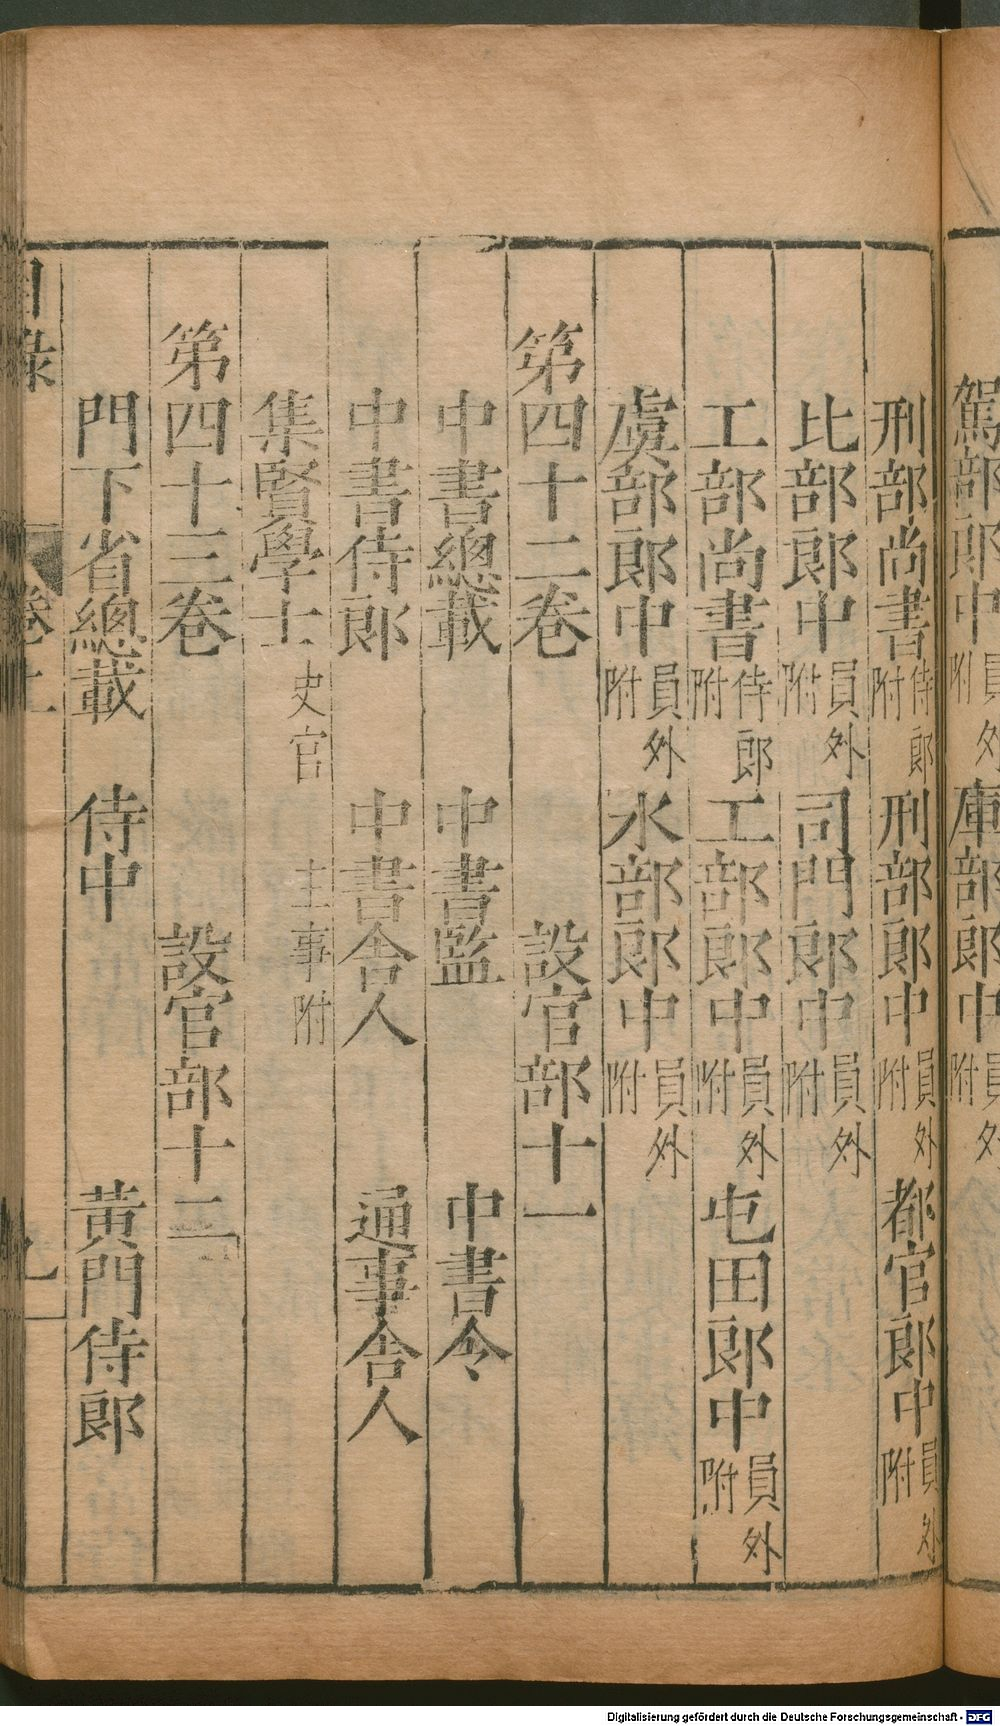 駕部郎中員外附 庫部郎中員外附
刑部尚書侍郎附 刑部郎中員外附 都官郎中員外附
比部郎中員外附 司門郎中員外附
工部尚書侍郎附 工部郎中員外附 屯田郎中員外附
虞部郎中員外附 水部郎中員外附
第四十二卷 設官部十一
中書總載 中書監 中書令
中書侍郎 中書舍人 通事舍人
集賢學士 史官 主事附
第四十三卷 設官部十二
門下省總載 侍中 黃門侍郎
目錄 卷上 九
Digitalisierung gefördert durch die Deutsche Forschungsgemeinschaft - DFG